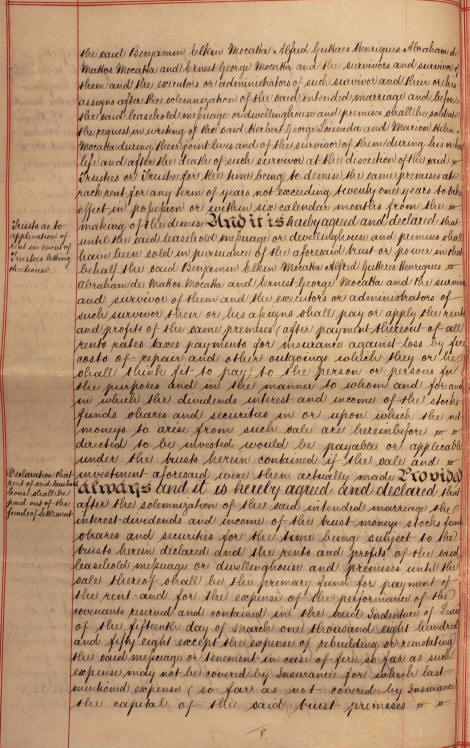 the said Benjamin Elkin Mocatta Alfred Gutteres Henriques Abraham de
Mattos Mocatta and Ernest George Mocatta and the survivors and survivor of
them and the executors or administrators of such survivor and their or his
assigns after the solemnization of the said intended marriage and before
the said leasehold messuage or dwellinghouse and premises shall be sold at
the request in writing of the said Herbert George Lousada and Marion Helen
Mocatta during their joint lives and of the survivor of them during his or her
life and after the death of such survivor at the discretion of the said
Trustees or Trustee for the time being to demise the same premises at
rack rent for any term of years not exceeding twenty one years to take
effect in possession or within six calendar months from the
making of the demise And it is hereby agreed and declared that
until the said leasehold messuage or dwellinghouse and premises shall
have been sold in pursuance of the aforesaid trust or power in that
behalf the said Benjamin Elkin Mocatta Alfred Gutteres Henriques
Abraham de Mattos Mocatta and Ernest George Mocatta and the survivors
and survivor of them and the executors or administrators of
such survivor their or his assigns shall pay or apply the rents
and profits of the same premises (after payment thereout of all
rents rates taxes payments for insurance against loss by fire
costs of repair and other outgoings which they or he
shall think fit to pay) to the person or persons for
the purposes and in the manner to whom and for and
in which the dividends interest and income of the stocks
funds shares and securities in or upon which the net
moneys to arise from such sale are hereinbefore
directed to be invested would be payable or applicable
under the trusts herein contained if the sale and
investment aforesaid were then actually made Provided
always and it is hereby agreed and declared that
after the solemnization of the said intended marriage the
interest dividends and income of the trust moneys stocks funds
shares and securities for the time being subject to the
trusts herein declared and the rents and profits of the said
leasehold messuage or dwellinghouse and premises until the
sale thereof shall be the primary fund for payment of
the rent and for the expense of the performance of the
covenants reserved and contained in the said Indenture of Lease
of the fifteenth day of March one thousand eight hundred
and fifty eight except the expense of rebuilding or reinstating
the said messuage or tenement in case of fire so far as such
expense may not be covered by Insurance for which last
mentioned expense (so far as not covered by Insurance
the capital of the said trust premises
Trusts as to
application of
rent in event of
Trustees letting
the house.
Declaration that
rent of said leasehold
house shall be
paid out of the
funds of Settlement
8.